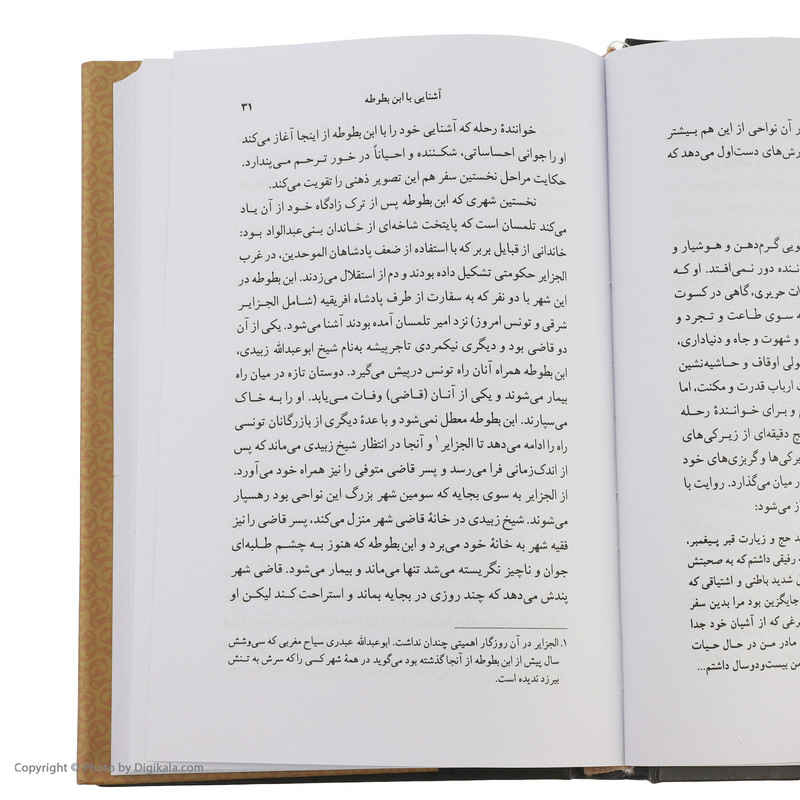 ر آن نواحی از این هم بیشتر
رش‌های دست‌اول می‌دهد که
ویی گرم‌دهن و هوشیار و
ننده دور نمی‌افتد. او که
ات حریری، گاهی در کسوت
ه سوی طاعت و تجرد و
و شهوت و جاه و دنیاداری،
ولی اوقاف و حاشیه‌نشین
ی ارباب قدرت و مکنت، اما
م و برای خوانندهٔ رحله
ج دقیقه‌ای از زیرکی‌های
یرکی‌ها و گریزی‌های خود
ر میان می‌گذارد. روایت با
ز می‌شود:
د حج و زیارت قبر پیغمبر،
ه رفیقی داشتم که به صحبتش
ی شدید باطنی و اشتیاقی که
جایگزین بود مرا بدین سفر
رغی که از آشیان خود جدا
مادر من در حال حیات
من بیست‌ودوسال داشتم...
آشنایی با ابن بطوطه ۳۱
خوانندهٔ رحله که آشنایی خود را با ابن بطوطه از اینجا آغاز می‌کند
او را جوانی احساساتی، شکننده و احیاناً در خور ترحم می‌پندارد.
حکایت مراحل نخستین سفر هم این تصویر ذهنی را تقویت می‌کند.
نخستین شهری که ابن بطوطه پس از ترک زادگاه خود از آن یاد
می‌کند تلمسان است که پایتخت شاخه‌ای از خاندان بنی‌عبدالواد بود:
خاندانی از قبایل بربر که با استفاده از ضعف پادشاهان الموحدین، در غرب
الجزایر حکومتی تشکیل داده بودند و دم از استقلال می‌زدند. ابن بطوطه در
این شهر با دو نفر که به سفارت از طرف پادشاه افریقیه (شامل الجزایر
شرقی و تونس امروز) نزد امیر تلمسان آمده بودند آشنا می‌شود. یکی از آن
دو قاضی بود و دیگری نیکمردی تاجرپیشه به‌نام شیخ ابوعبدالله زبیدی،
ابن بطوطه همراه آنان راه تونس درپیش می‌گیرد. دوستان تازه در میان راه
بیمار می‌شوند و یکی از آنان (قاضی) وفات می‌یابد. او را به خاک
می‌سپارند. ابن بطوطه معطل نمی‌شود و با عدهٔ دیگری از بازرگانان تونسی
راه را ادامه می‌دهد تا الجزایر۱ و آنجا در انتظار شیخ زبیدی می‌ماند که پس
از اندک‌زمانی فرا می‌رسد و پسر قاضی متوفی را نیز همراه خود می‌آورد.
از الجزایر به سوی بجایه که سومین شهر بزرگ این نواحی بود رهسپار
می‌شوند. شیخ زبیدی در خانهٔ قاضی شهر منزل می‌کند، پسر قاضی را نیز
فقیه شهر به خانهٔ خود می‌برد و ابن بطوطه که هنوز به چشم طلبه‌ای
جوان و ناچیز نگریسته می‌شد تنها می‌ماند و بیمار می‌شود. قاضی شهر
پندش می‌دهد که چند روزی در بجایه بماند و استراحت کند لیکن او
۱. الجزایر در آن روزگار اهمیتی چندان نداشت. ابوعبدالله عبدری سیاح مغربی که سی‌وشش
سال پیش از ابن بطوطه از آنجا گذشته بود می‌گوید در همهٔ شهر کسی را که سرش به تنش
بیرزد ندیده است.
Copyright © Photo by Digikala.com